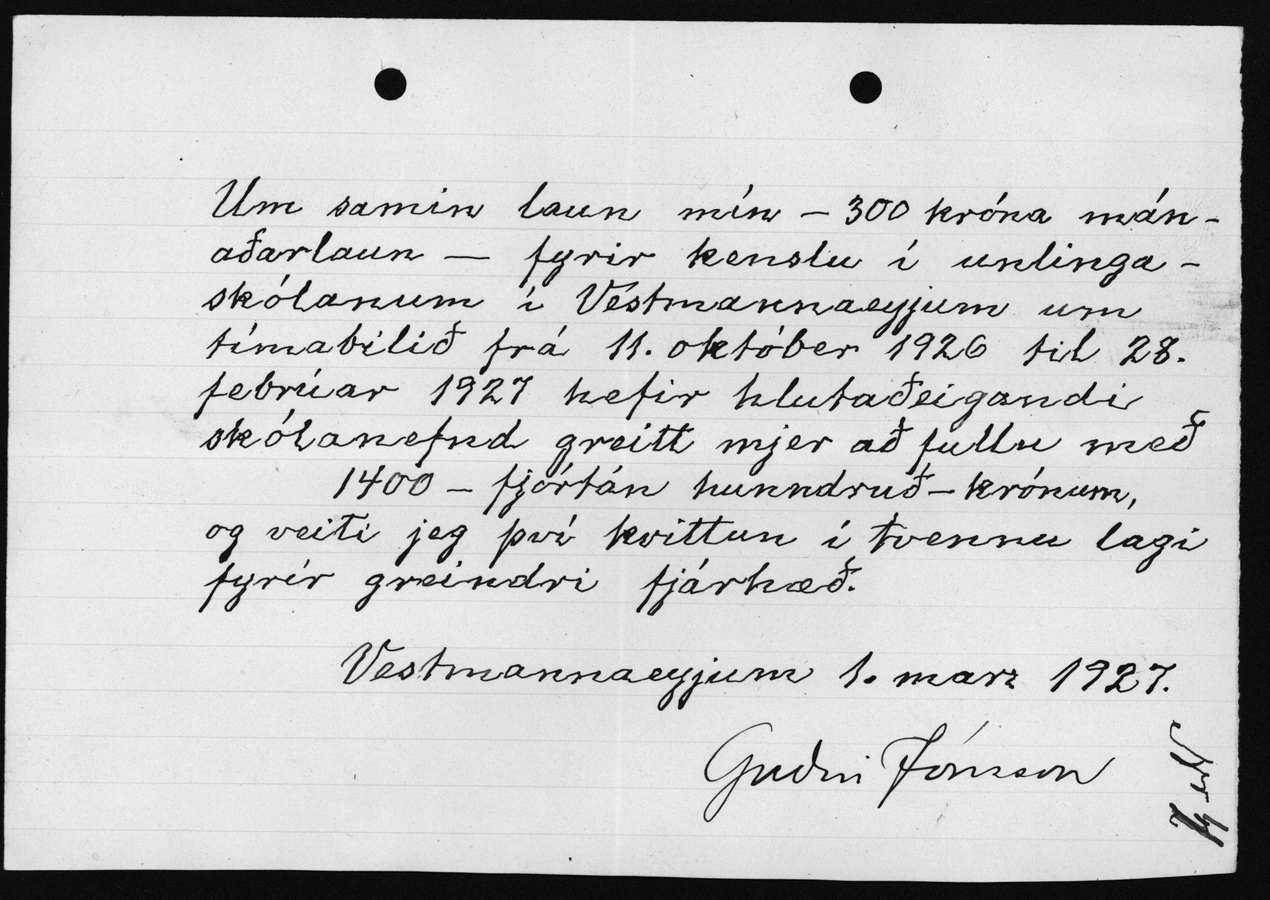 Um samin laun mín – 300 króna mán-
aðarlaun — fyrir kenslu í unlinga-
skólanum í Vestmannaeyjum um
tímabilið frá 11. október 1926 til 28.
febrúar 1927 hefir hlutaðeigandi
skólanefnd greitt mjer að fullu með
1400 – fjórtán hunndruð – krónum,
og veiti jeg því kvittun í tvennu lagi
fyrir greindri fjárhæð.
Vestmannaeyjum 1. marz 1927.
Guðni Jónsson